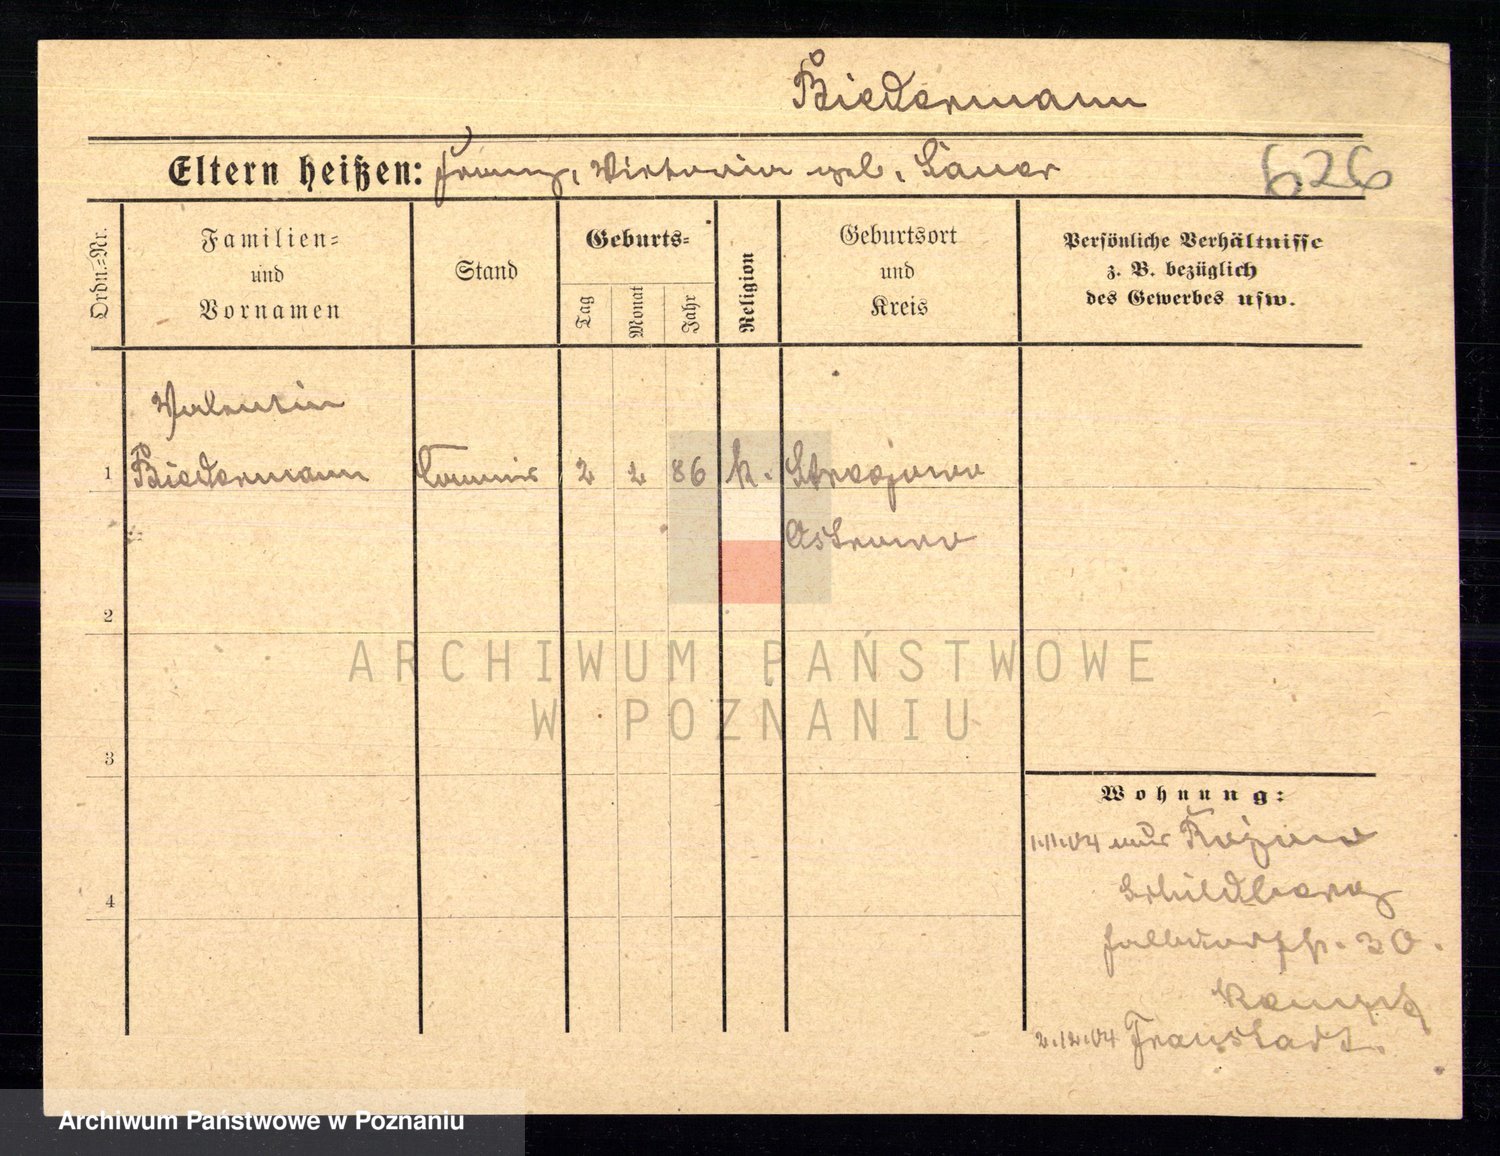 Biedermann
Eltern heißen: Franz, Victoria geb. Sauer
626
Ordn.=Nr.
Familien=
und
Vornamen
Stand
Geburts=
Tag
Monat
Jahr
Religion
Geburtsort
und
Kreis
Persönliche Verhältnisse
z. B. bezüglich
des Gewerbes usw.
Valentin
1 Biedermann Commis 2 2 86 k.
2
3
4
ARCHIWUM PAŃSTWOWE
W POZNANIU
Wohnung:
1.11.04 aus
Schildberg
30.
2.12.04 Fraustadt.
Archiwum Państwowe w Poznaniu